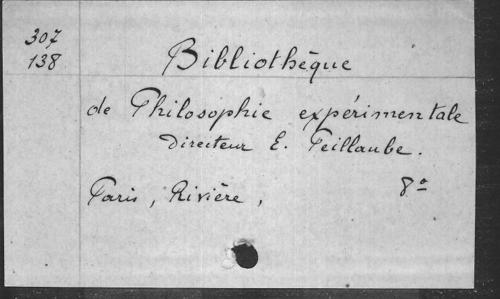 307
138
Bibliothèque
de Philosophie expérimentale
Directeur E. Peillaube.
Paris, Rivière, 8°